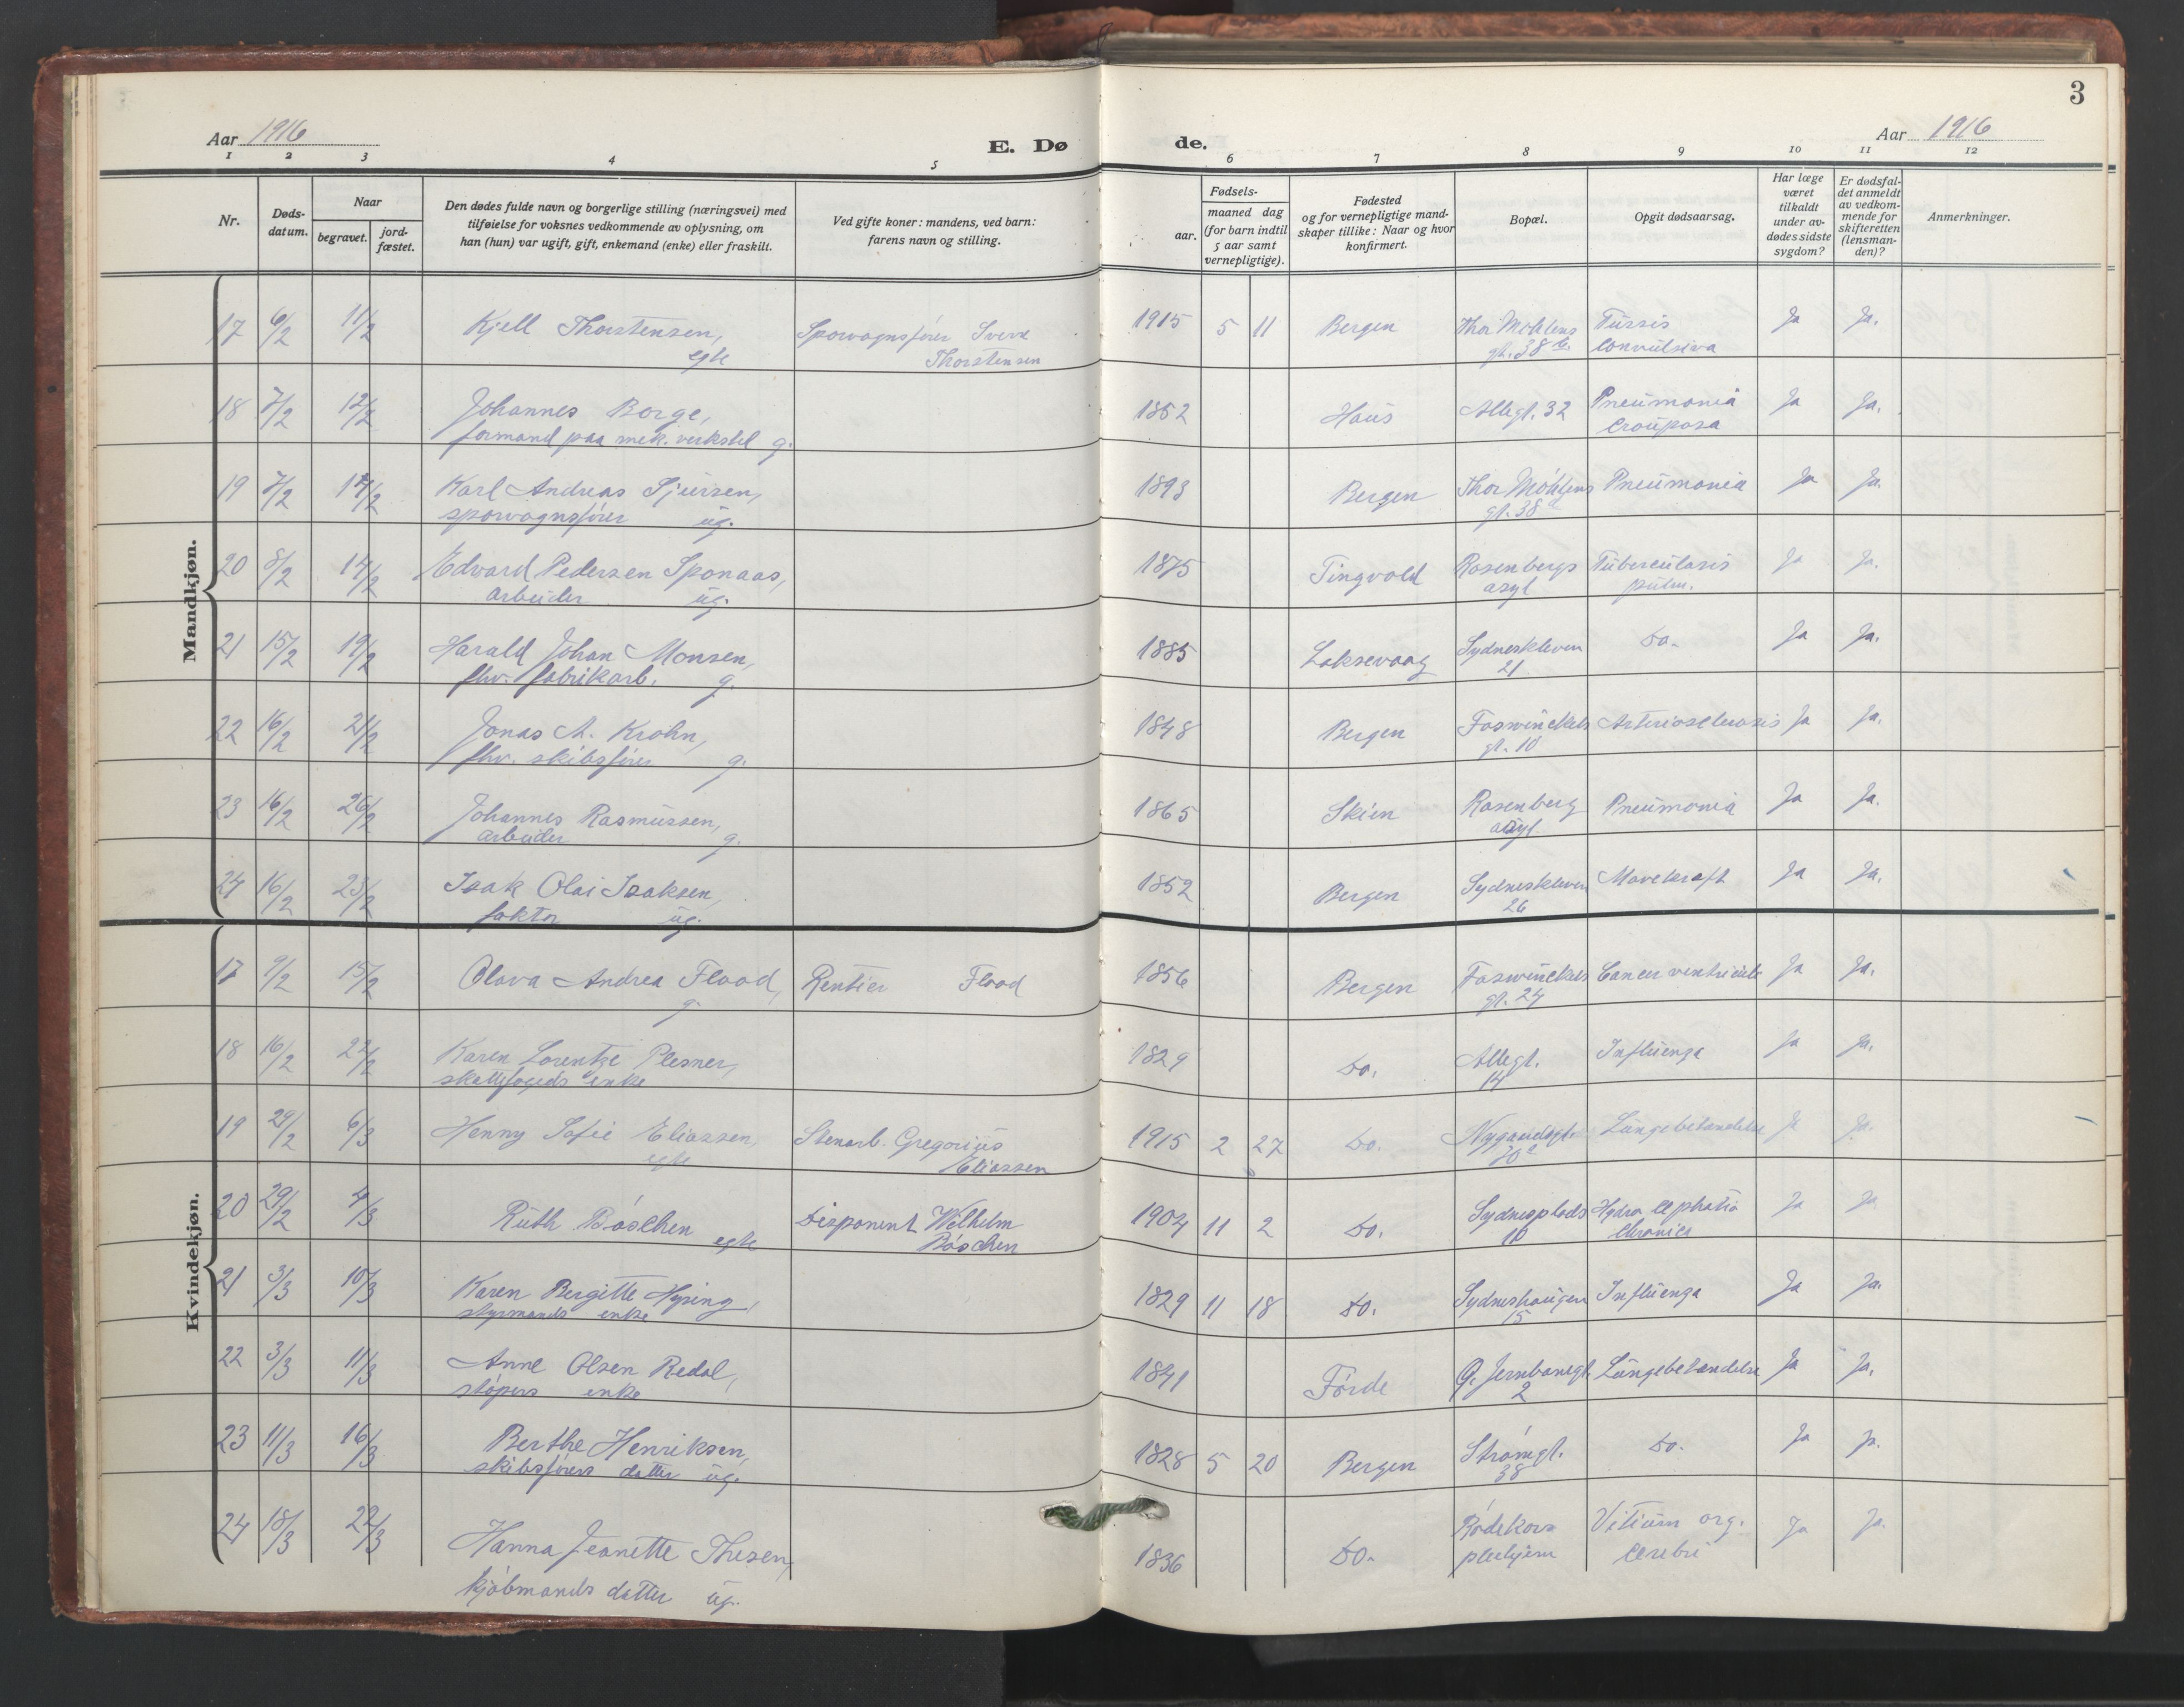 3
Aar 1916
E. Dø de.
Aar 1916
1 2 3 4 5 6 7 8 9 10 11 12
Nr.
Døds-
datum.
Naar
begravet.
jord-
fæstet.
Den dødes fulde navn og borgerlige stilling (næringsvei) med
tilføielse for voksnes vedkommende av oplysning, om
han (hun) var ugift, gift, enkemand (enke) eller fraskilt.
Ved gifte koner: mandens, ved barn:
farens navn og stilling.
Fødsels-
aar.
maaned dag
(for barn indtil
5 aar samt
vernepligtige).
Fødested
og for vernepligtige mand-
skaper tillike: Naar og hvor
konfirmert.
Bopæl.
Opgit dødsaarsag.
Har læge
været
tilkaldt
under av-
dødes sidste
sygdom?
Er dødsfal-
det anmeldt
av vedkom-
mende for
skifteretten
(lensman-
den)?
Anmerkninger.
Mandkjøn.
17 6/2 11/2 Kjell Thorstensen, Sporvognsfører Sverre 1915 5 11 Bergen Thor Møhlens Tussis Ja Ja.
egte Thorstensen gt. 38 b. convulsiva
18 7/2 12/2 Johannes Borge, 1852 Haus Allegt. 32 Pneumonia Ja Ja.
formand paa mek. verksted g. Crouposa
19 7/2 14/2 Karl Andreas Sjursen, 1893 Bergen Thor Møhlens Pneumonia Ja Ja.
sporvognsfører ug. gt. 38
20 8/2 14/2 Edvard Pedersen Sponaas, 1875 Tingvold Rosenbergs Tuberculosis Ja Ja.
arbeider ug. asyl pulm.
21 15/2 19/2 Harald Johan Monsen, 1885 Laksevaag Sydneskleven Do. Ja Ja.
fhv. fabrikarb. g. 21
22 16/2 21/2 Jonas A. Krohn, 1848 Bergen Foswinckels Arteriosclerosis Ja Ja.
fhv. skibsfører g. gt. 10
23 16/2 26/2 Johannes Rasmussen, 1865 Skien Rosenberg Pneumonia Ja Ja.
arbeider g. asyl
24 16/2 23/2 Isak Olai Isaksen, 1852 Bergen Sydneskleven Mavekræft Ja Ja.
faktor ug. 26
Kvindekjøn.
17 9/2 15/2 Olava Andrea Flood, Rentier Flood 1856 Bergen Foswinckels Cancer ventriculi Ja Ja.
g. gt. 24
18 16/2 22/2 Karen Lorentze Plesner, 1829 Do. Allegt. Influenza Ja Ja.
skattefogeds enke 14
19 29/2 6/3 Henny Sofie Eliassen, Stenarb. Gregorius 1915 2 27 Do. Nygaardsgt. Lungebetændelse Ja Ja.
egte Eliassen
20 29/2 4/3 Ruth Böschen Disponent Wilhelm 1904 11 2 Do. Sydnesplads Hydrocephatia Ja Ja.
egte Böschen 10 chronica
21 3/3 10/3 Karen Bergitte Hysing, 1829 11 18 Do. Sydneshaugen Influenza Ja Ja.
styrmands enke 15
22 3/3 11/3 Anne Olsen Redal, 1841 Førde Ø. Jernbanegt. Lungebetændelse Ja Ja.
støpers enke 2
23 11/3 16/3 Berthe Henriksen, 1828 5 20 Bergen Strømgt. Do. Ja Ja.
skibsførers datter ug. 38
24 18/3 22/3 Hanna Jeanette Thesen, 1836 Do. Rødekors Vitium org. Ja Ja.
kjøbmands datter ug. pleiehjem cerebri